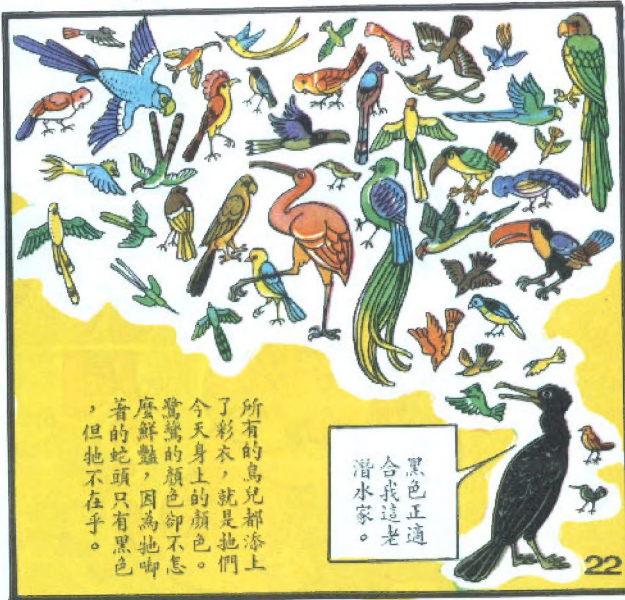 所有的鳥兒都添上
了彩衣，就是牠們
今天身上的顏色。
鷺鷥的顏色卻不怎
麼鮮豔，因為牠啣
著的蛇頭只有黑色
，但牠不在乎。
黑色正適
合我這老
潛水家。
22